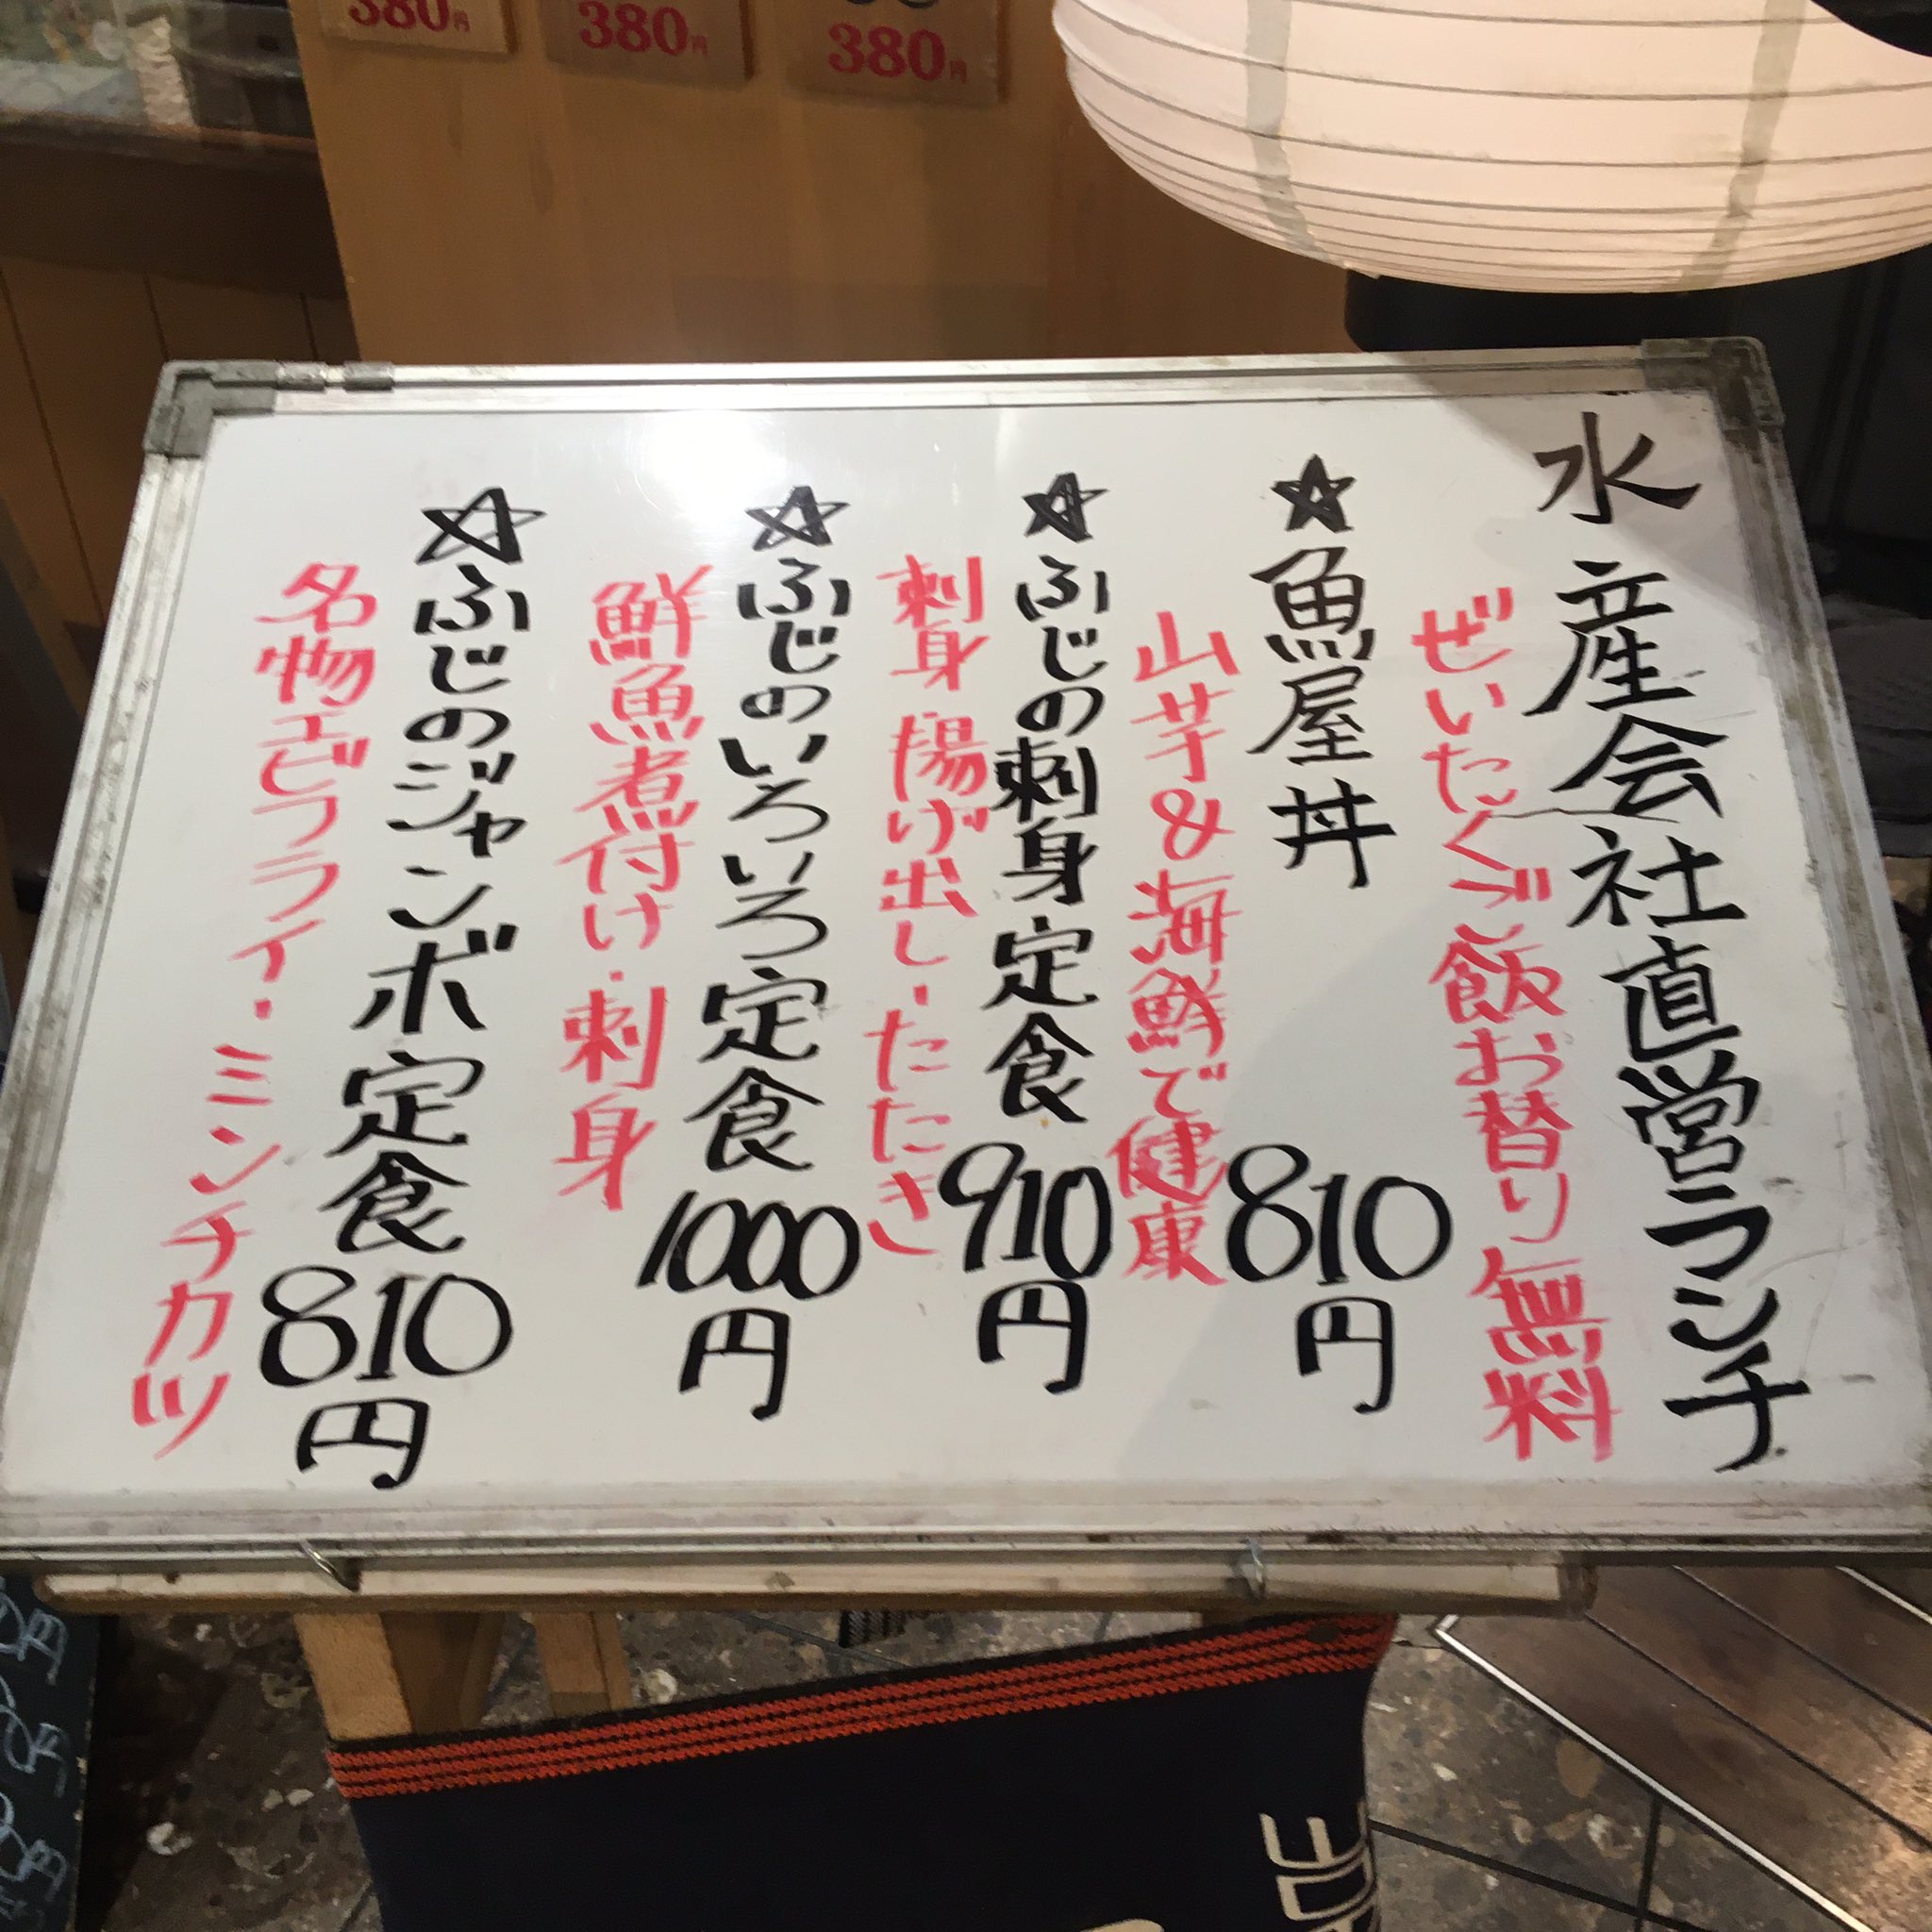 380円
380円
380円
水産会社直営ランチ
ぜいたくご飯お替り無料
★魚屋丼 810円
山芋&海鮮で健康
★ふじの刺身定食 910円
刺身・揚げ出し・たたき
☆ふじのいろいろ定食 1000円
鮮魚煮付け・刺身
☆ふじのジャンボ定食 810円
名物エビフライ・ミンチカツ